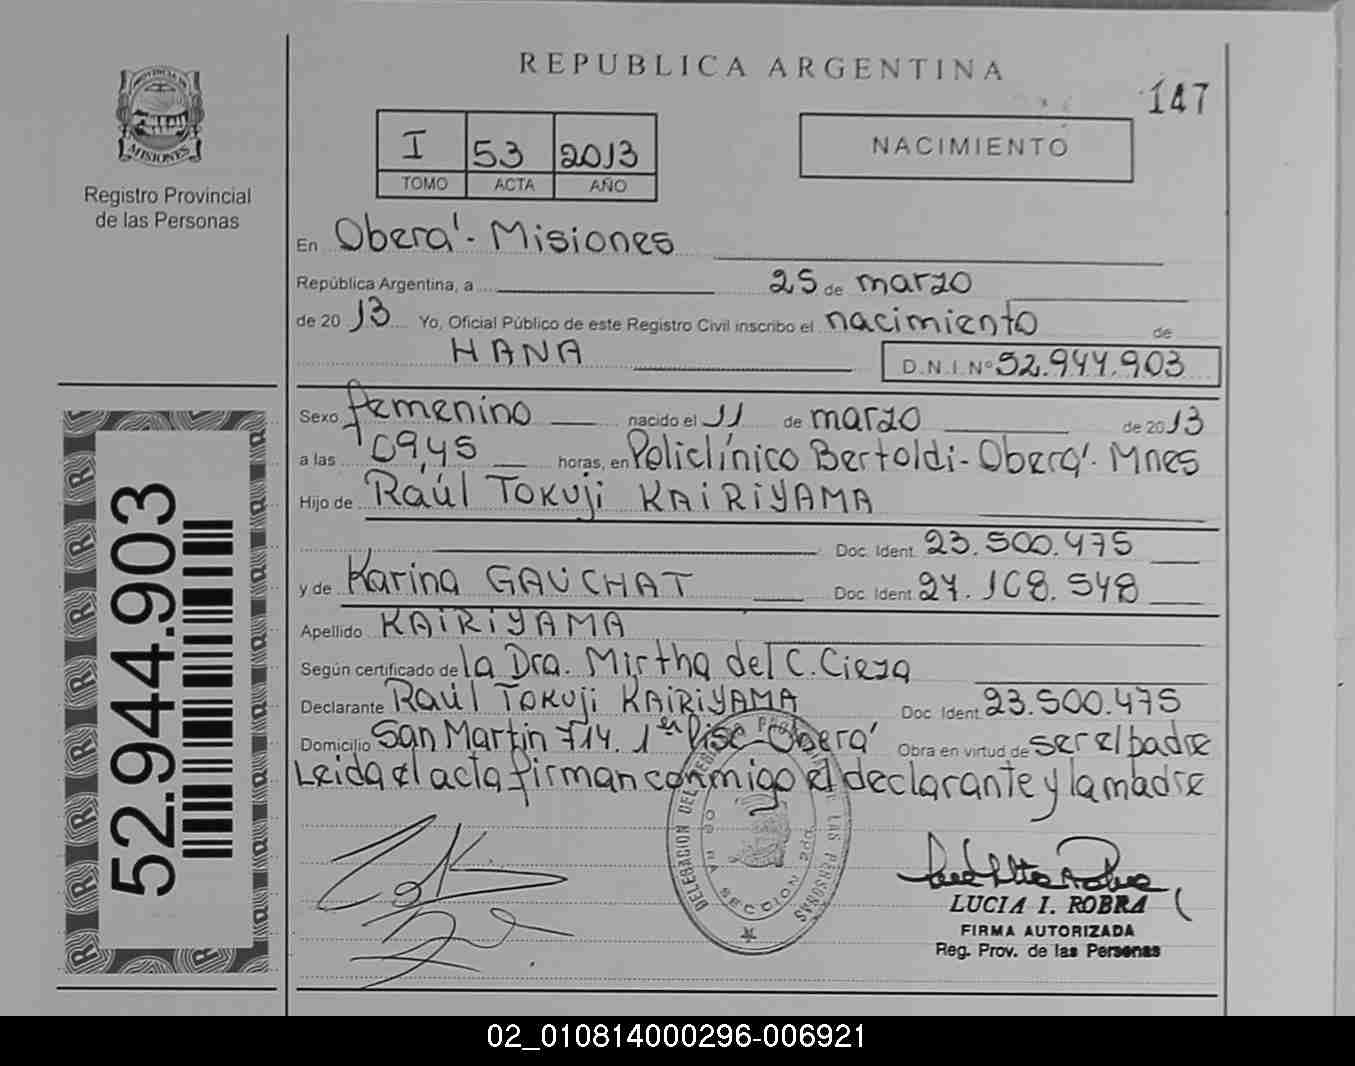 REPUBLICA ARGENTINA
147
PROVINCIA DE
MISIONES
Registro Provincial
de las Personas
I 53 2013
TOMO ACTA AÑO
NACIMIENTO
En Oberá - Misiones
República Argentina, a 25 de marzo
de 20 13 Yo, Oficial Público de este Registro Civil inscribo el nacimiento de
HANA D.N.I. Nº 52.944.903
Sexo femenino nacido el 11 de marzo de 20 13
a las 0945 horas, en Policlínico Bertoldi - Oberá - Mnes
Hijo de Raúl Tokuji KAIRIYAMA
Doc. Ident. 23.500.475
y de Karina GAUCHAT Doc. Ident. 27.168.548
Apellido KAIRIYAMA
Según certificado de la Dra. Mirtha del C. Cieza
Declarante Raúl Tokuji KAIRIYAMA Doc. Ident. 23.500.475
Domicilio San Martin 714. 1er Piso - Oberá Obra en virtud de ser el padre
Leida el acta firman conmigo el declarante y la madre
DELEGACION DEL REGISTRO PROVINCIAL DE LAS PERSONAS
SECCION 2da
LUCIA I. ROBRA
FIRMA AUTORIZADA
Reg. Prov. de las Personas
52.944.903
02_010814000296-006921